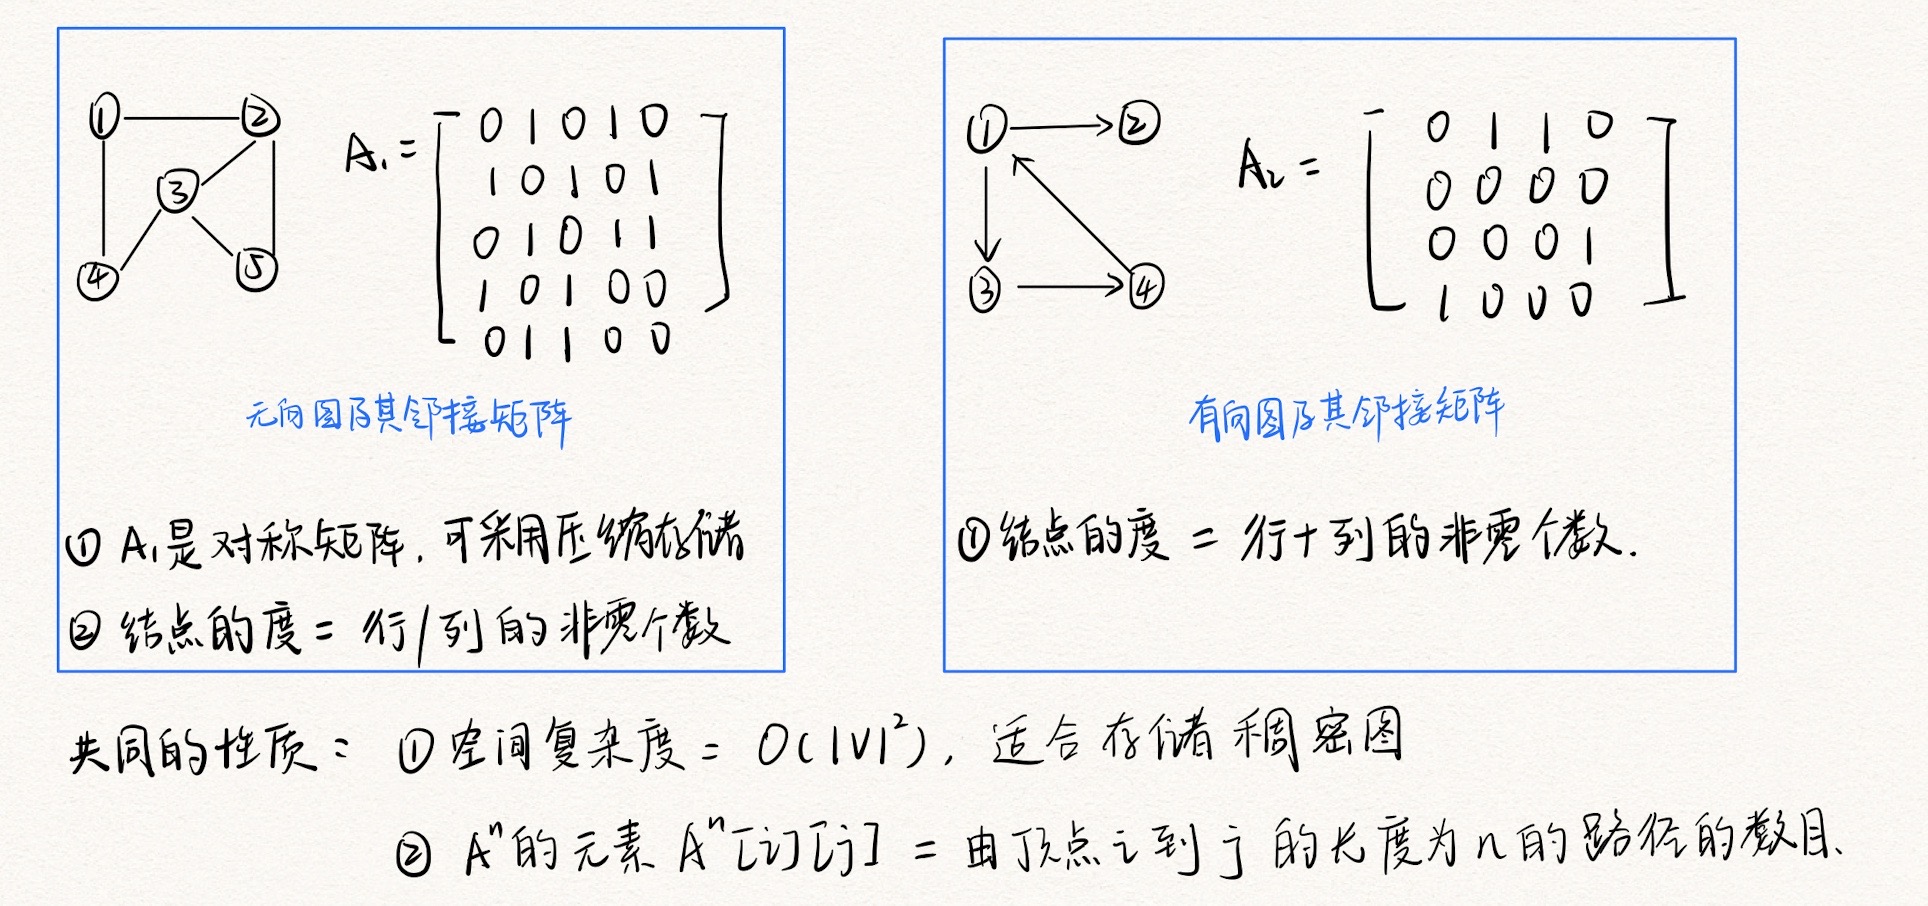 ① ②
③
④ ⑤
A₁ =
0 1 0 1 0
1 0 1 0 1
0 1 0 1 1
1 0 1 0 0
0 1 1 0 0
无向图及其邻接矩阵
① A₁是对称矩阵,可采用压缩存储
② 结点的度 = 行/列的非零个数
① ②
③ ④
A₂ =
0 1 1 0
0 0 0 0
0 0 0 1
1 0 0 0
有向图及其邻接矩阵
①结点的度 = 行+列的非零个数.
共同的性质: ①空间复杂度 = O(|V|²), 适合存储稠密图
② Aⁿ的元素 Aⁿ[i][j] = 由顶点 i 到 j 的长度为 n 的路径的数目.